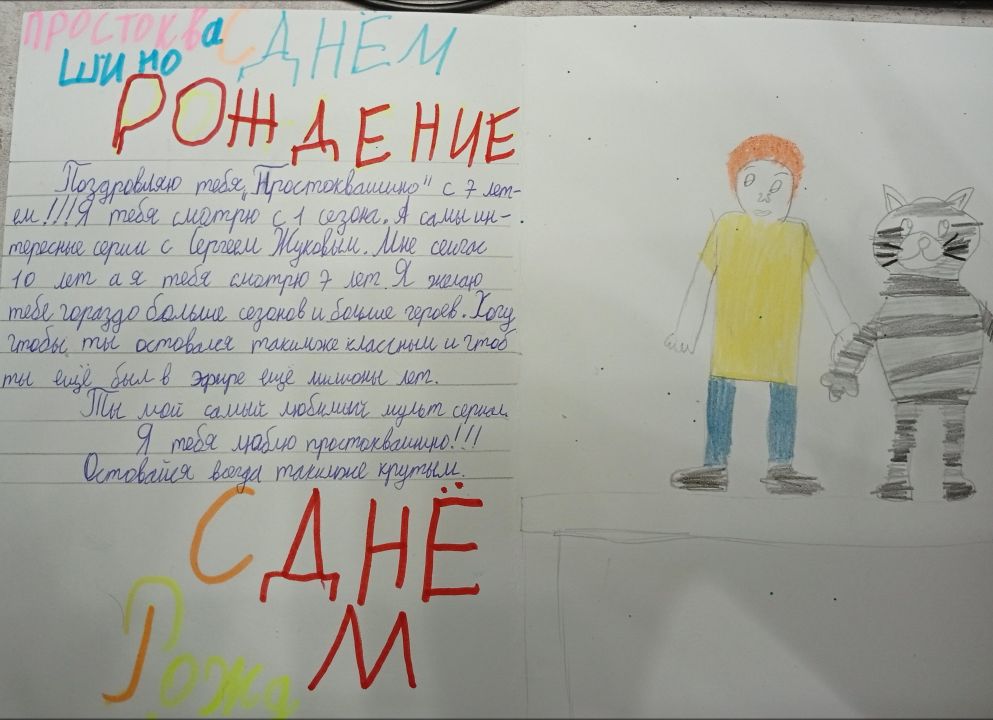 ПРОСТОКВа С ДНЁМ
ШИНО
РОЖДЕНИЕ
Поздровляю тебя „Простоквашино" с 7 лет-
ем!!! Я тебя смотрю с 1 сезона. А самы ин-
тересные серии с Сергеем Жуковым. Мне сейчас
10 лет а я тебя смотрю 7 лет. Я желаю
тебе гораздо больше сезонов и больше героев. Хочу
чтобы ты оставался такимже классным и чтоб
ты ещё был в эфире ещё милионы лет.
Ты мой самый любимый мульт сериал.
Я тебя люблю простоквашино!!!
Оставайся всегда такимже крутым.
С ДНЁ
М
Рожд